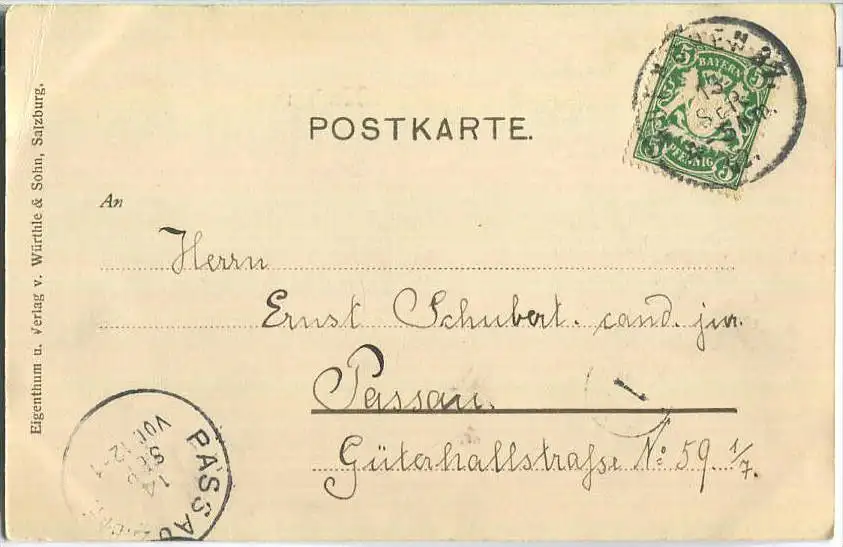 POSTKARTE.
5 BAYERN 5
5 PFENNIG 5
13
SEP.
An
Herrn
Ernst Schubert. cand. jur.
Passau.
Güterhallstraße No: 59. 1/7.
Eigenthum u. Verlag v. Würthle & Sohn, Salzburg.
PASSAU
14
SEP
Vor. 12-1